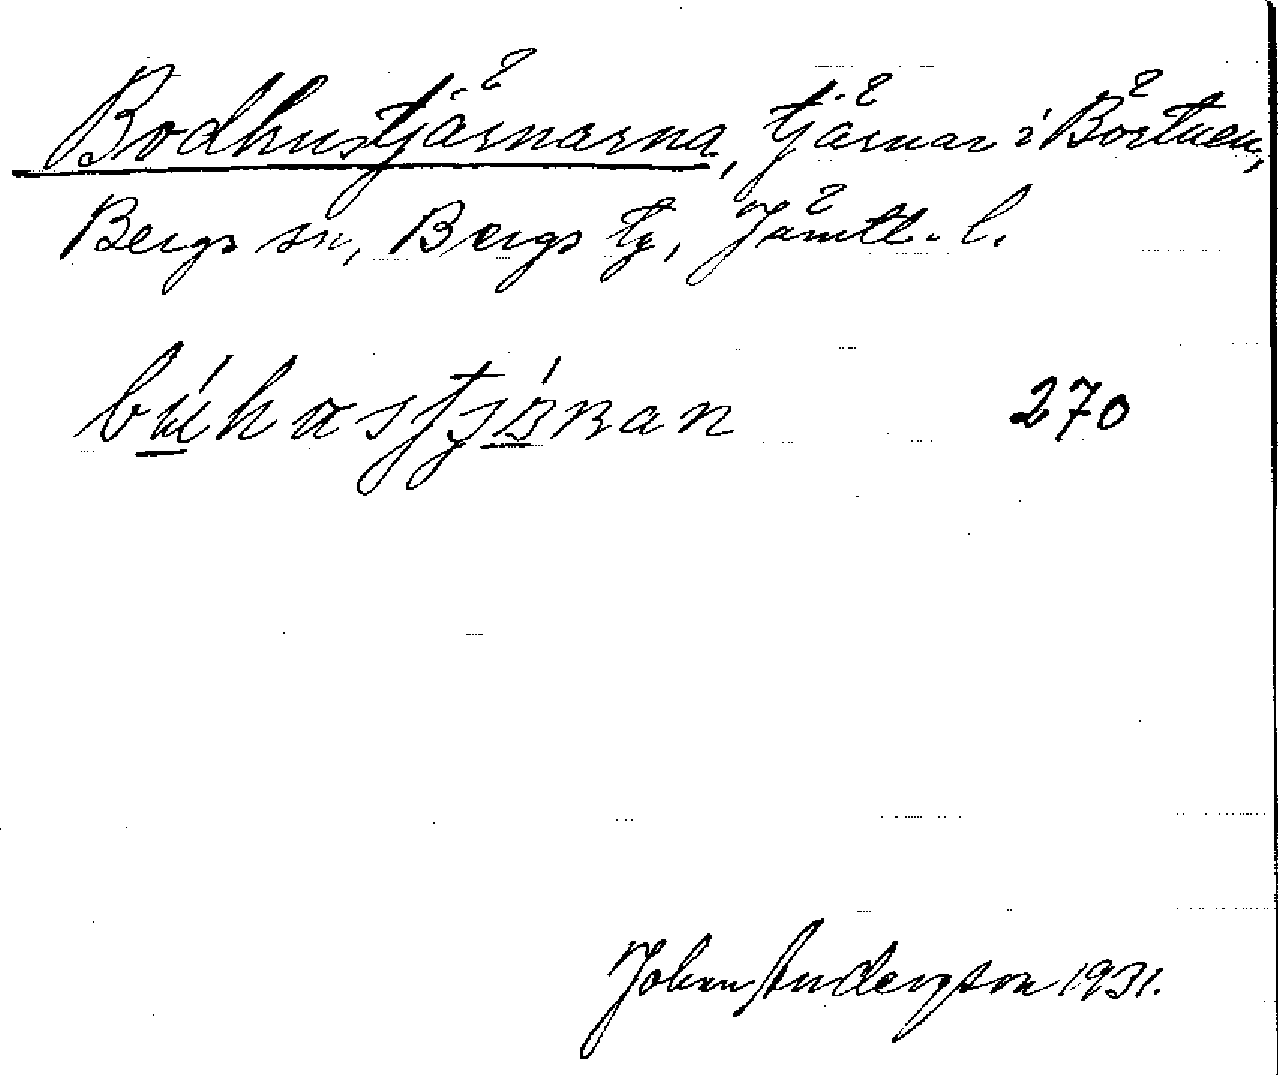 Bodhustjärnarna, tjärnar i Börtnen,
Bergs sn, Bergs tg, Jämtl. l.
búhastjä́ṇan 270
Johan Andersson 1931.